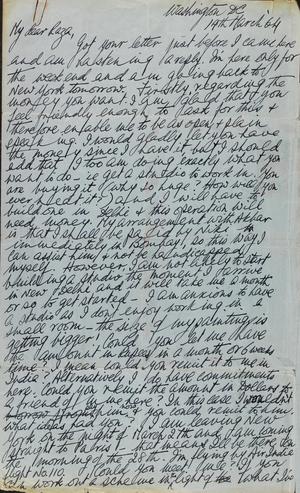 Washington DC
19th March '64
My dear Raza,
Got your letter just before I came here
and am hastening a reply. I'm here only for
the weekend and am going back to
New York tomorrow. Firstly, regarding the
money you want. I am glad that you
feel friendly enough to ask for this
therefore enable me to be as open & plain
speaking. I would gladly let you have
the money since I have it but I should
add that I too am doing exactly what you
want to do - ie get a studio to work in. You
are buying it (why so huge? How will you
ever heat it?) and I will have to
build one in Delhi & this operation will
need money. My arrangement with Akbar
is that I shall be paying Niki
immediately in Bombay, so this way I
can assist him & not be handicapped
myself. However, I am not likely to start
building a studio the moment I arrive
in New Delhi and it will take me a month
or so to get started - I am anxious to have
a studio as I don't enjoy working in a
small room - the size of my paintings is
getting bigger! Could you let me have
the amount in rupees in a month or 6 weeks
time? I mean could you remit it to me in
India? Alternatively - I do have commitments
here. Could you remit the amount in Dollars to
a friend of mine here? In this case I wouldn't
him & you could remit to him.
what ideas had you? I am leaving New
York on the night of March 27th and I am coming
straight to Paris - that means I'll be there on
the morning of the 28th. I'm flying by Air India
flight No. Could you meet me? If you
can work out a scheme in light of what I is